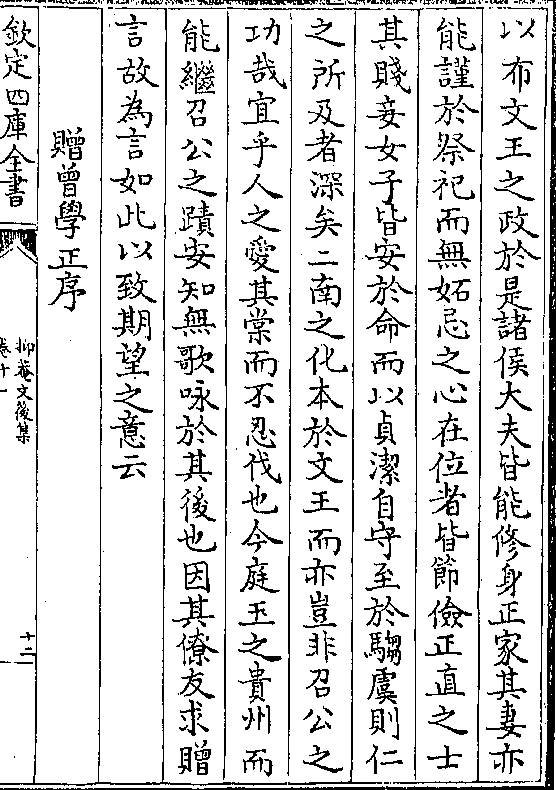 以布文王之政於是諸侯大夫皆能修身正家其妻亦
能謹於祭祀而無妬忌之心在位者皆節儉正直之士
其賤妾女子皆安於命而以貞潔自守至於騶虞則仁
之所及者深矣二南之化本於文王而亦豈非召公之
功哉宜乎人之愛其棠而不忍伐也今庭玉之貴州而
能繼召公之蹟安知無歌咏於其後也因其僚友求贈
言故為言如此以致期望之意云
贈曾學正序
欽定四庫全書
抑菴文後集
卷十一
十二